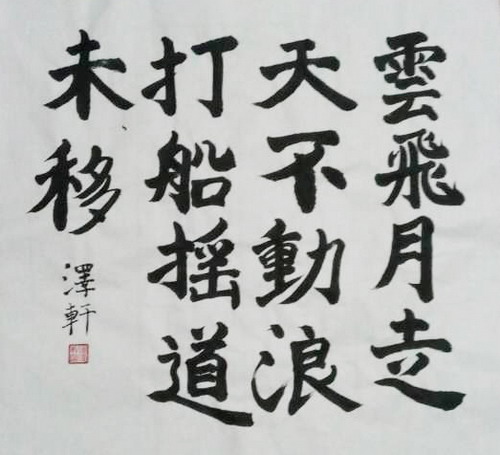 雲飛月走
天不動浪
打船摇道
未移
澤軒